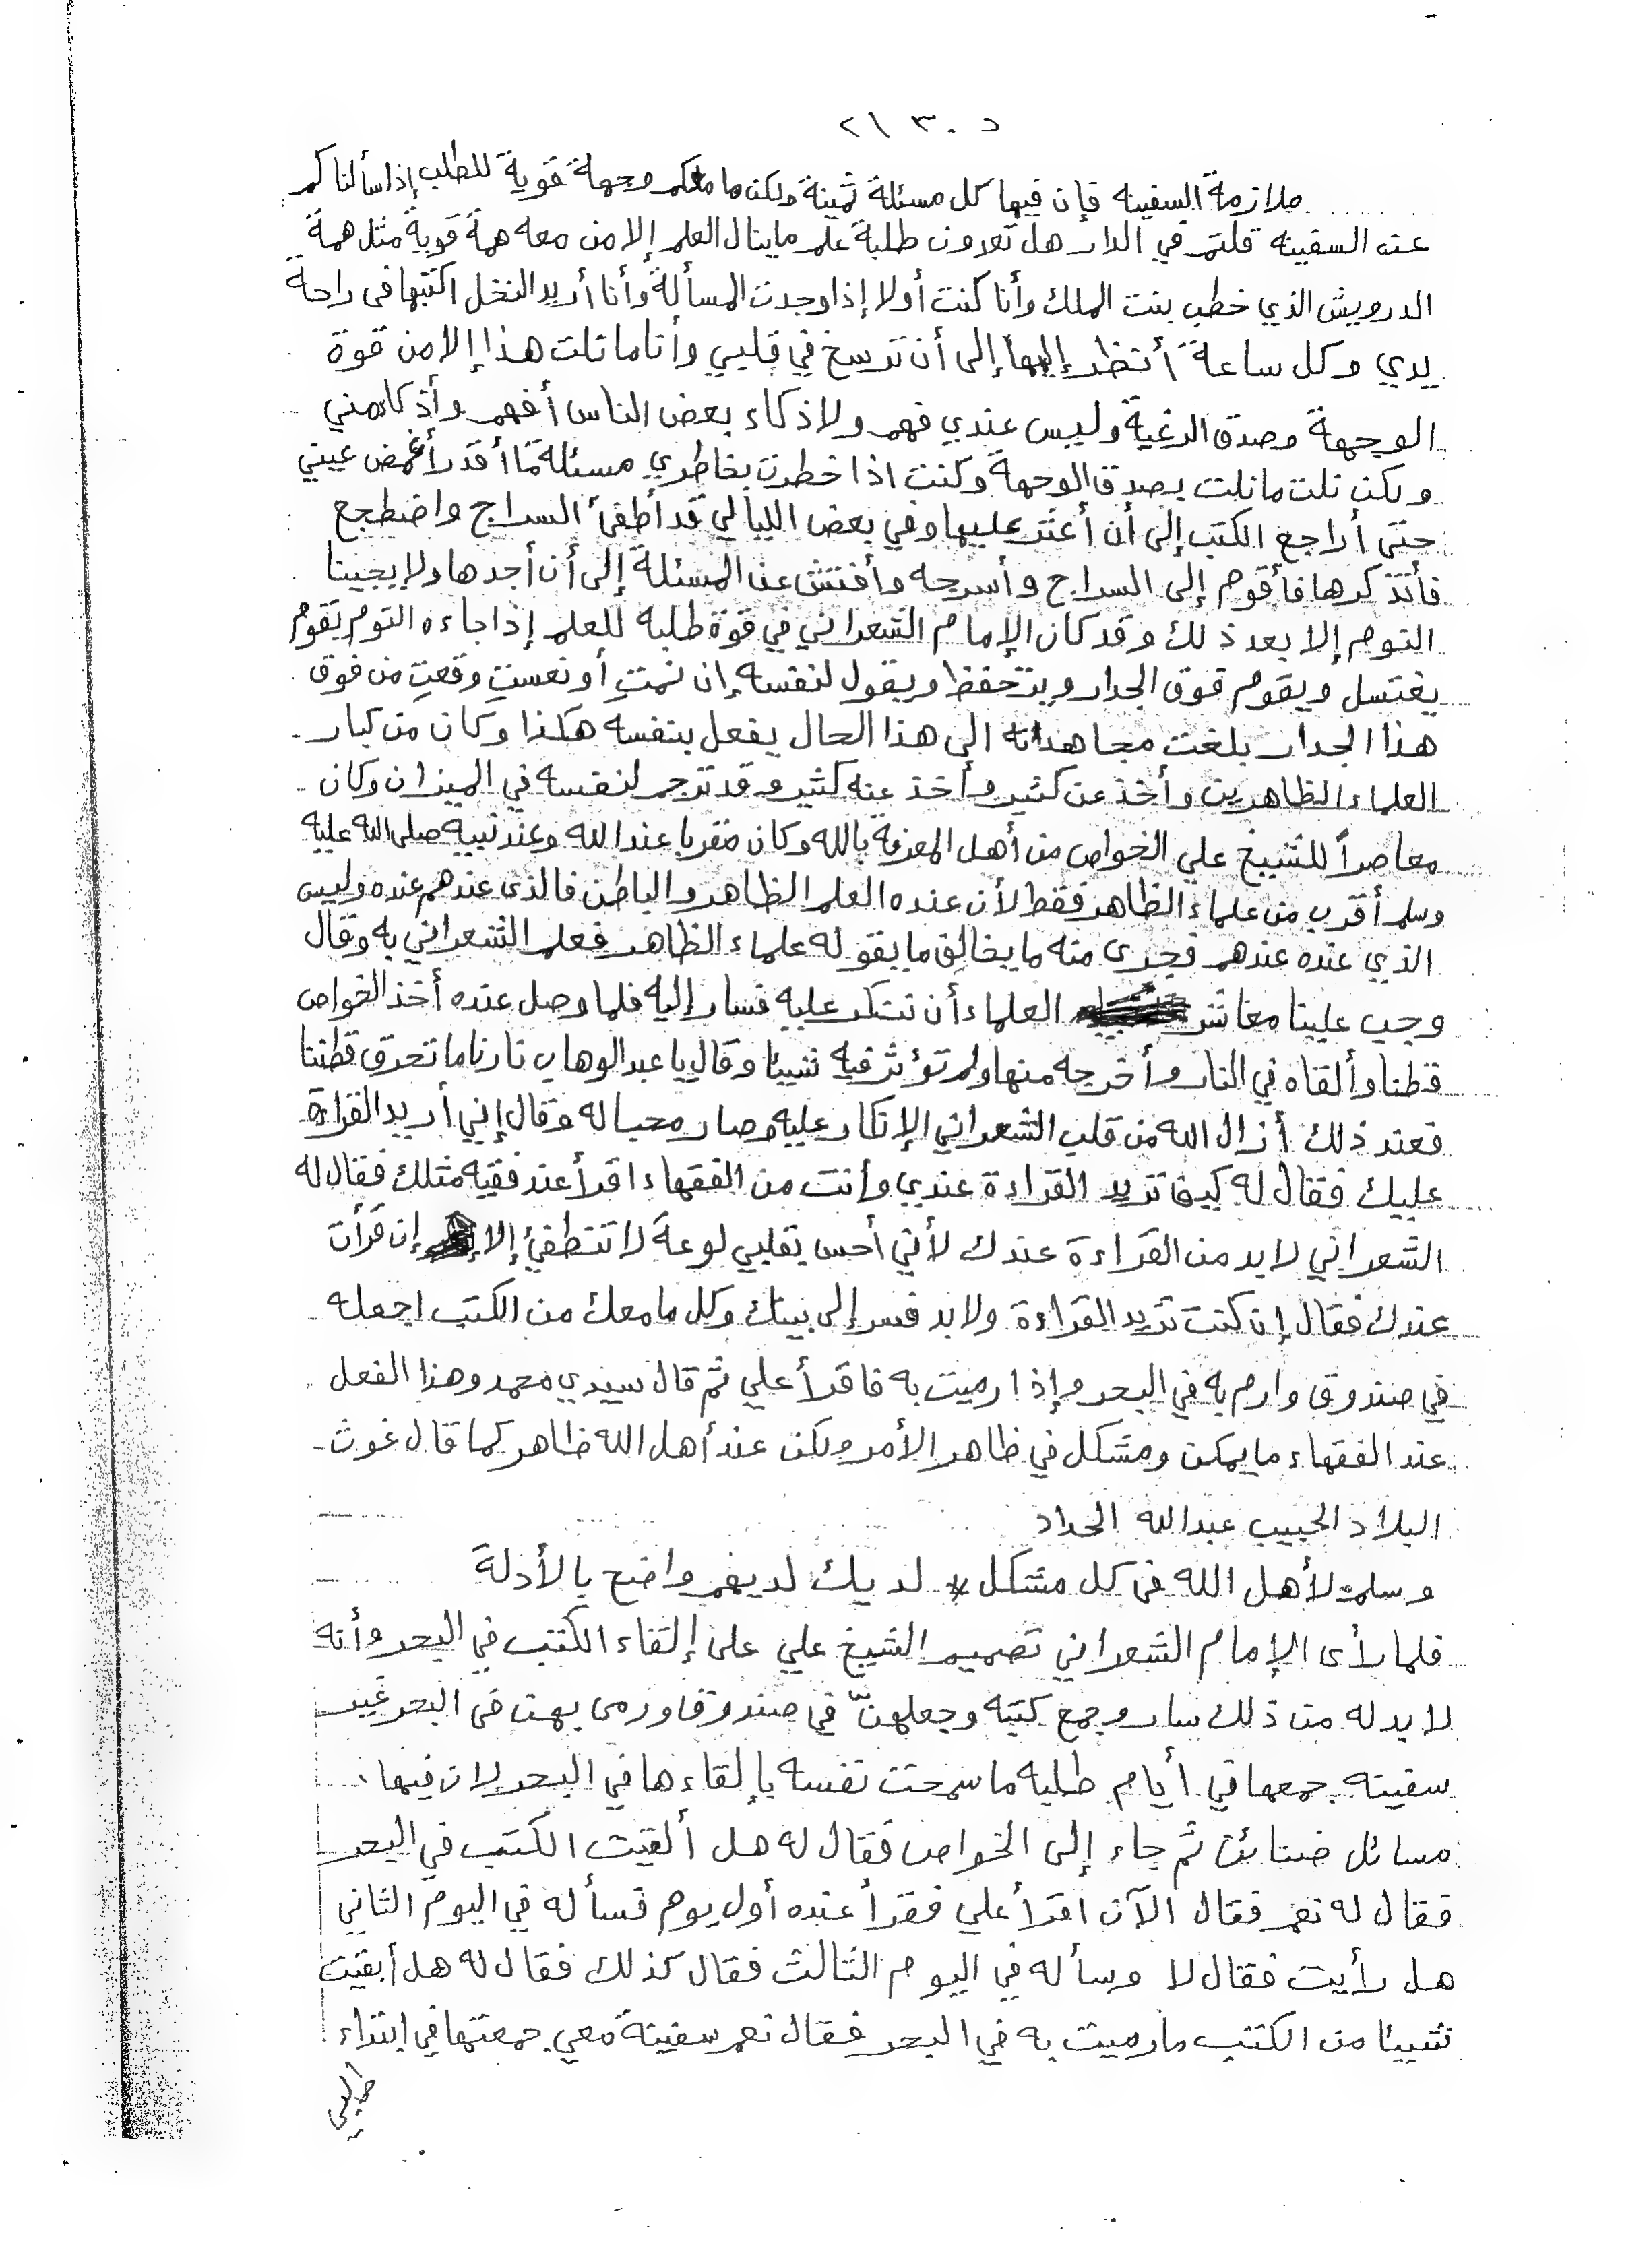 د ٣٠ ٢١
ملازمة السفينه فإن فيها كل مسئلة ثمينة ولكن ما معكم وجهة قوية للطلب إذا سألناكم
عن السفينه قلتم في الدار هل تعدون طلبة علم ما ينال العلم إلا من معه همة قوية مثل همة
الدرويش الذي خطب بنت الملك وأنا كنت أولا إذا وجدت المسألة وأنا أريد النخل اكتبها في راحة
يدي وكل ساعة أنظر إليها إلى أن ترسخ في قلبي وأنا ما نلت هذا إلا من قوة
الوجهة وصدق الرغبة وليس عندي فهم ولا ذكاء بعض الناس أفهم وأذكا مني
ولكن نلت ما نلت بصدق الوجهة وكنت اذا خطرت بخاطري مسئلة ما أقدر أغمض عيني
حتى أراجع الكتب إلى أن أعثر عليها وفي بعض الليالي قد أطفئ السراج واضطجع
فأتذكرها فأقوم إلى السراج وأسرجه وأفتش عن المسئلة إلى أن أجدها ولا يجيبنا
النوم إلا بعد ذلك وقد كان الإمام الشعراني في قوة طلبه للعلم إذا جاءه النوم يقوم
يغتسل ويقوم فوق الجدار ويتحفظ ويقول لنفسه إن نمتِ أو نعستِ وقعتِ من فوق
هذا الجدار بلغت مجاهداته الى هذا الحال يفعل بنفسه هكذا وكان من كبار
العلماء الظاهرين وأخذ عن كثير وأخذ عنه كثير وقد ترجم لنفسه في الميزان وكان
معاصراً للشيخ علي الخواص من أهل المعرفة بالله وكان مقربا عند الله وعند نبيه صلى الله عليه
وسلم أقرب من علماء الظاهر فقط لأن عنده العلم الظاهر والباطن فالذى عندهم عنده وليس
الذي عنده عندهم فجرى منه ما يخالف ما يقوله علماء الظاهر فعلم الشعراني به وقال
وجب علينا معاشر العلماء أن ننكر عليه فسار إليه فلما وصل عنده أخذ الخواص
قطنا وألقاه في النار وأخرجه منها ولم تؤثر فيه شيئا وقال يا عبد الوهاب نارنا ما تحرق قطننا
فعند ذلك أزال الله من قلب الشعراني الإنكار عليه وصار محبا له وقال إني أريد القراءة
عليك فقال له كيف تريد القراءة عندي وأنت من الفقهاء اقرأ عند فقيه مثلك فقال له
الشعراني لا بد من القراءة عندك لأني أحس بقلبي لوعة لا تنطفئ إلا إن قرأت
عندك فقال إن كنت تريد القراءة ولا بد فسر إلى بيتك وكل ما معك من الكتب اجعله
في صندوق وارم به في البحر وإذا رميت به فاقرأ علي ثم قال سيدي محمد وهذا الفعل
عند الفقهاء ما يمكن ومشكل في ظاهر الأمر ولكن عند أهل الله ظاهر كما قال غوث
البلاد الحبيب عبدالله الحداد
وسلم لأهل الله في كل مشكل * لديك لديهم واضح بالأدلة
فلما رأى الإمام الشعراني تصميم الشيخ علي على إلقاء الكتب في البحر وأنه
لا بد له من ذلك سار وجمع كتبه وجعلهنّ في صندوق ورمى بهن في البحر غير
سفينه جمعها في أيام طلبه ما سمحت نفسه بإلقاءها في البحر لان فيها
مسائل ضنائن ثم جاء إلى الخواص فقال له هل ألقيت الكتب في البحر
فقال له نعم فقال الآن اقرأ علي فقرأ عنده أول يوم فسأله في اليوم الثاني
هل رأيت فقال لا وسأله في اليوم الثالث فقال كذلك فقال له هل أبقيت
شيئا من الكتب ما رميت به في البحر فقال نعم سفينة معي جمعتها في ابتداء
طلبي